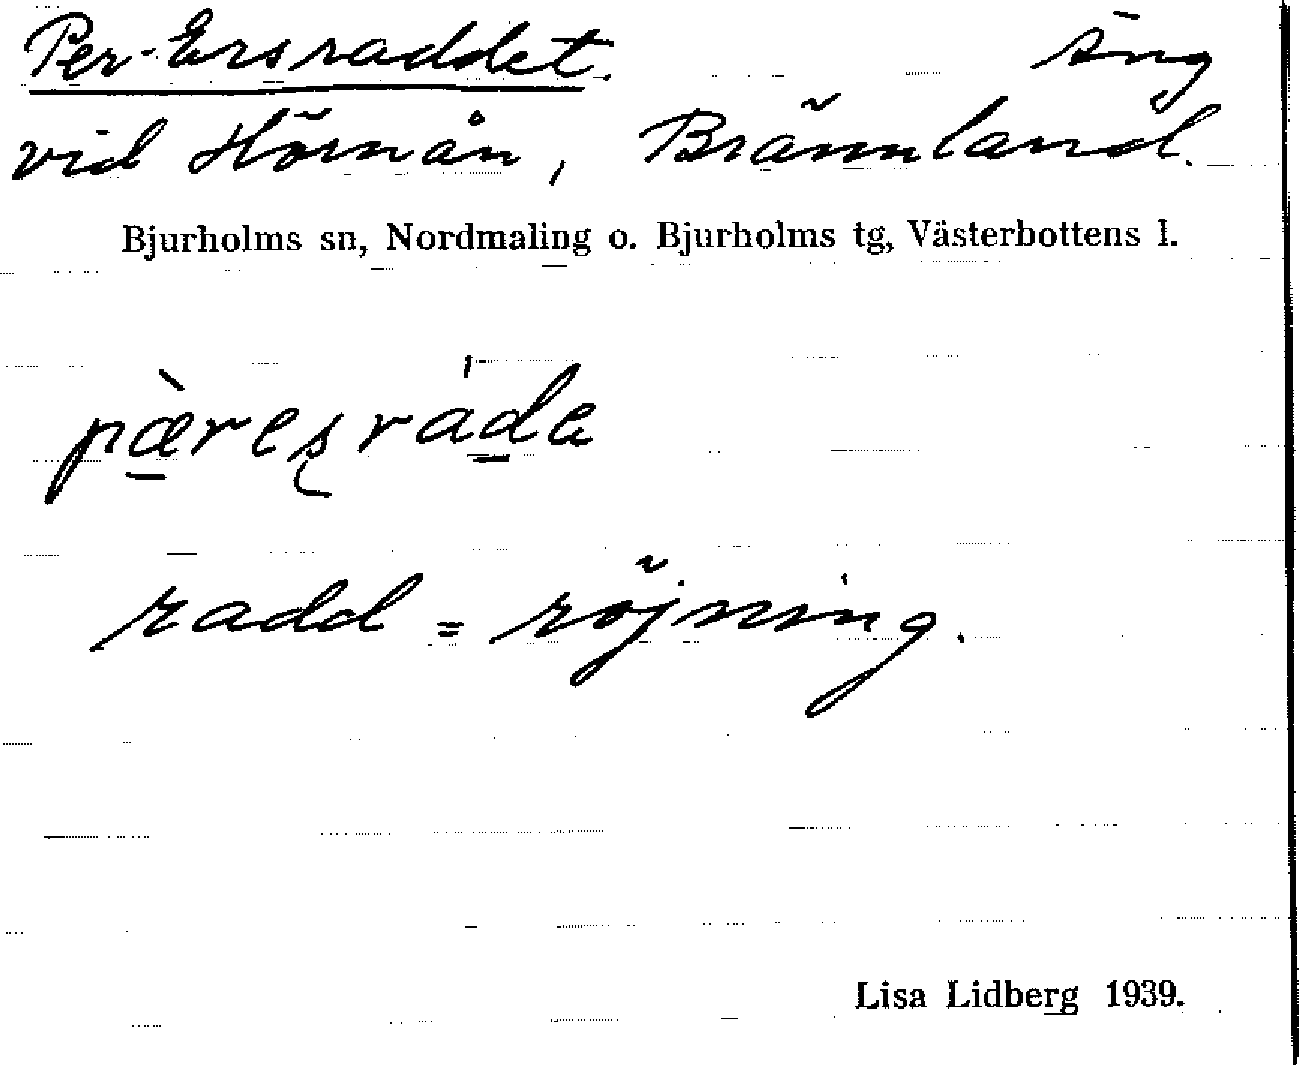 Per-Ersraddet. äng
vid Hörnån, Brännland.
Bjurholms sn, Nordmaling o. Bjurholms tg, Västerbottens l.
pæ̀res̨ráda
radd = röjning.
Lisa Lidberg 1939.